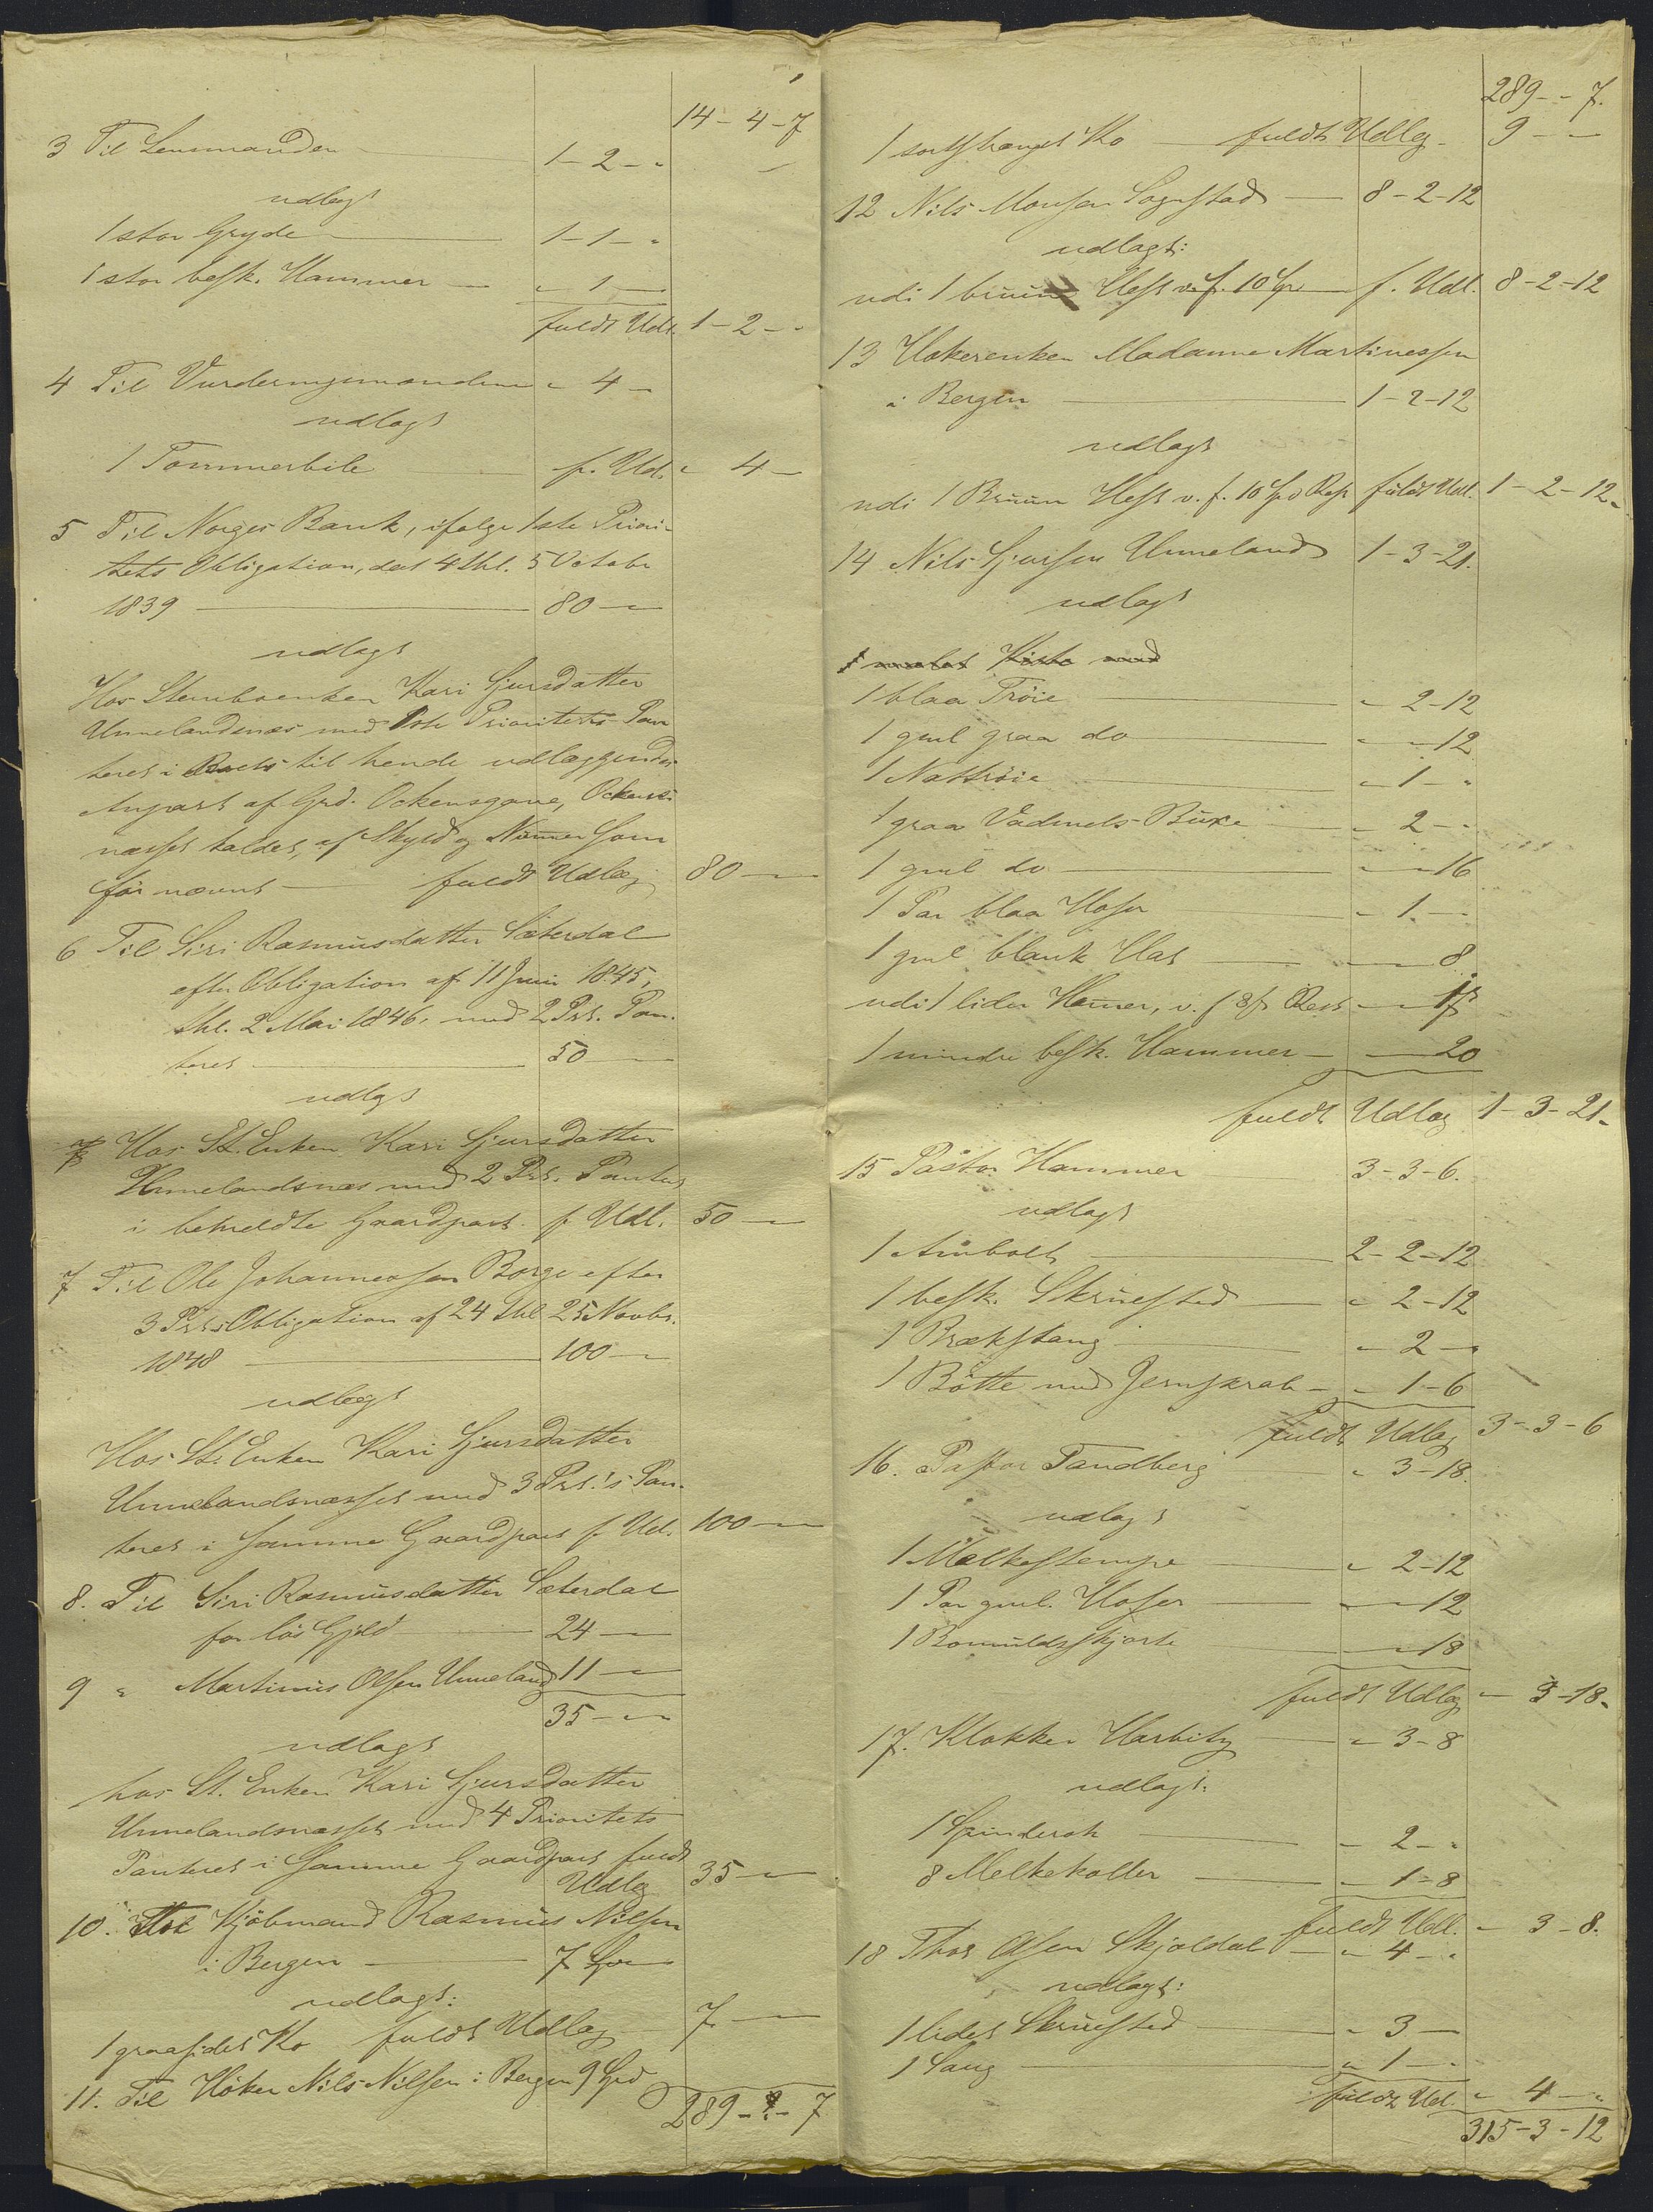 14 - 4 - 7
3 Til Lensmanden 1 - 2 - "
udlagt
1 stor Gryde 1 - 1 - "
1 stor besk. Hammer " 1 -
fuldt Udl. 1 - 2 - "
4 Til Vurderingsmændene " 4 -
udlagt
1 Tømmerbile f. Udl. " 4 -
5 Til Norges Bank, ifølge 1ste Priori-
tets Obligation, dat 4 thl. 5 Octobr
1839 80 - "
udlagt
Hos Stervboenken Kari Sjursdatter
Unnelandsnæs med 1ste Prioritets Pan
teret i til hende udlæggendes
Anpart af Grd. Ockensgave, Ockens-
næsset kaldet, af Skyld og Nummer som
før nævnt fuldt Udlæg 80 -
6 Til Siri Rasmusdatter Sæterdal
efter Obligation af 11 Juni 1845,
thl. 2 Mai 1846, med 2 Prt. Pan-
teret 50 -
udlagt
Hos St. Enken Kari Sjursdatter
Unnelandsnæs med 2 Prt. Panteret
i bemeldte Gaardpart f Udl. 50 -
7 Til Ole Johannessen Borge efter
3 Prts Obligation af 24 thl 25 Novbr.
1848 100 -
udlagt
Hos St. Enken Kari Sjursdatter
Unnelandsnæsset med 3 Prt.'s Pan-
teret i samme Gaardpart f Udl. 100 -
8. Til Siri Rasmusdatter Sæterdal
for løs Gjeld 24 -
9 " Martinus Olsen Unneland 11 -
35 - "
udlagt
hos St. Enken Kari Sjursdatter
Unnelandsnæsset med 4 Prioritets
Panteret i samme Gaardpart fuldt
Udlæg 35 -
10. Kjøbmand Rasmus Nilsen
i Bergen 7
udlagt:
1 graasidet Ko fuldt Udlæg 7 -
11. Til Høker Nils Nilsen i Bergen 9 Spd
289 - " - 7
289 - - 7.
1 sorthranget Ko fuldt Udlæg 9 - -
12 Nils Monsen Sognstad 8 - 2 - 12
udlagt:
udi 1 bruun Hest v. f. 10 Spd f. Udl. 8 - 2 - 12
13 Høkerenken Madamme Martinessen
i Bergen 1 - 2 - 12
udlagt
udi 1 Bruun Hest v. f. 10 Spd Rest fuldt Udl. 1 - 2 - 12.
14 Nils Sjursen Unneland 1 - 3 - 21.
udlagt
1 malet Kiste med
1 blaa Trøie " 2 - 12
1 gml graa do " - 12
1 Nattrøie " 1 - "
1 graa Vadmels-Buxe " 2 - "
1 gml do " - 16
1 Par blaa Hoser " 1 -
1 gml blank Hat " 8
udi 1 liden Hamer, v. f 8 s Rest
1 mindre besk. Hammer 20
fuldt Udlæg 1 - 3 - 21.
15 Pastor Hammer 3 - 3 - 6.
udlagt
1 Ambolt 2 - 2 - 12
1 besk. Skruested " 2 - 12
1 Brækstang " 2 - "
1 Bøtte med Jernskrab " 1 - 6
fuldt Udlæg 3 - 3 - 6
16. Pastor Tandberg " 3 - 18.
udlagt
1 Mælkestempe " 2 - 12
1 Par gml. Hoser " 12
1 Bomuldsskjorte " 18
fuldt Udlæg " 3 - 18.
17. Klokker Harbitz " 3 - 8
udlagt.
1 Spinderok " 2 - "
8 Melkekoller " 1 - 8
fuldt Udl. " 3 - 8.
18 Thor Olsen Skjoldal " 4 - "
udlagt:
1 lidet Skruested " 3 -
1 Saug " 1 -
fuldt Udl. " 4 - "
315 - 3 - 12